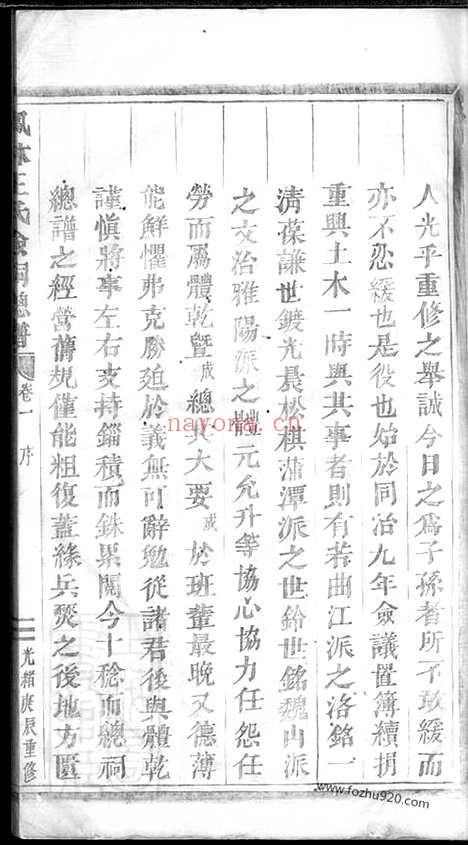 人光乎重修之舉誠今日之爲子孫者所不敢緩而
亦不忍緩也是役也始於同治九年僉議置簿續捐
重興土木一時與共事者則有若曲江派之洛銘一
淸葆謙世鍍光晨松祺蒲潭派之世鈴世銘魏山派
之文治雅陽派之體元允升等協心協力任怨任
勞而屬體乾暨成總其大要成於班輩最晚又德薄
能鮮懼弗克勝廹於義無可辭勉從諸君後與體乾
謹愼將事左右支持錙積而銖累閱今十稔而總祠
總譜之經營舊規僅能粗復蓋緣兵燹之後地方匱
鳳林王氏僉祠總譜
卷一
序
光緒庚辰重修
nayona.cn
www.fozhu920.com